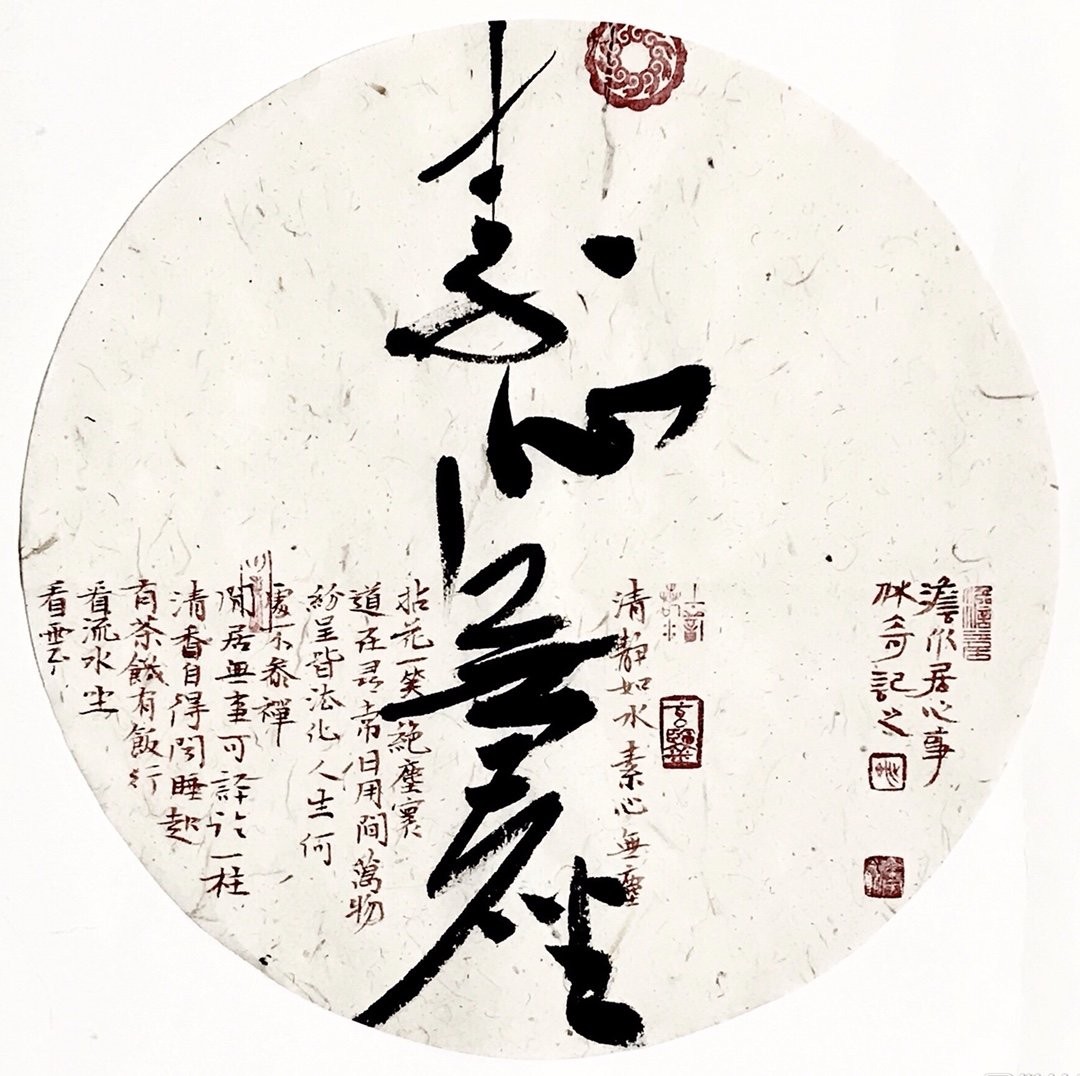 素心無塵
澹居心事
奇記之
清靜如水 素心無塵
拈花一笑絕塵寰
道在尋常日用間萬物
紛呈皆法化人生何
處不參禪
閒居無事可評論一柱
清香自得聞睡起
有茶饑有飯行
看流水坐
看雲